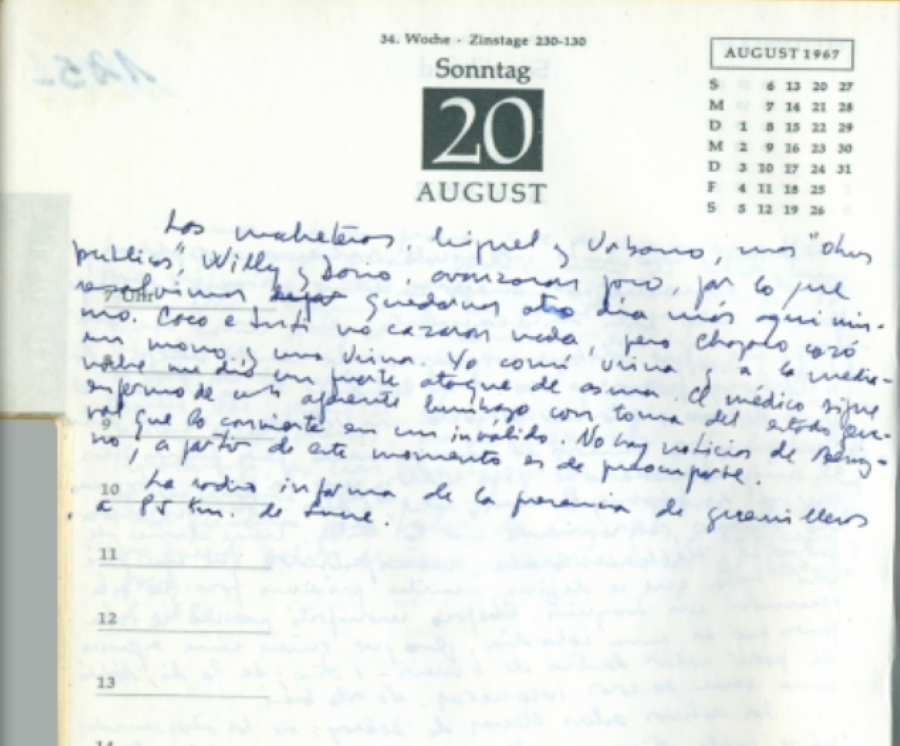 34. Woche · Zinstage 230-130
Sonntag
20
AUGUST
AUGUST 1967
S 6 13 20 27
M 7 14 21 28
D 1 8 15 22 29
M 2 9 16 23 30
D 3 10 17 24 31
F 4 11 18 25
S 5 12 19 26
Los macheteros, Miguel y Urbano, más "obras
públicas", Willy y Darío, avanzaron poco, por lo que
resolvimos quedarnos otro día más aquí mis-
mo. Coco e Inti no cazaron nada, pero Chapaco cazó
un mono y una urina. Yo comí urina y a la media-
noche me dió un fuerte ataque de asma. El médico sigue
enfermo de un aparente lumbago con toma del estado gene-
ral que lo convierte en un inválido. No hay noticias de Benig-
no, a partir de este momento es de preocuparse.
La radio informa de la presencia de guerrilleros
a 85 km. de Sucre.
7 Uhr
8
9
10
11
12
13
14